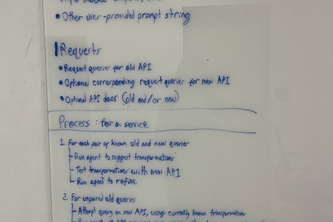 • Other user-provided prompt string
Requests
• Request queries for old API
• Optional corresponding request queries for new API
• Optional API docs (old and/or new)
Process: for a service
1. For each pair of known old and new queries
- Run agent to suggest transformations
- Test transformations with new API
- Run agent to refine
2. For unpaired old queries
- Attempt query on new API, using currently known transformations